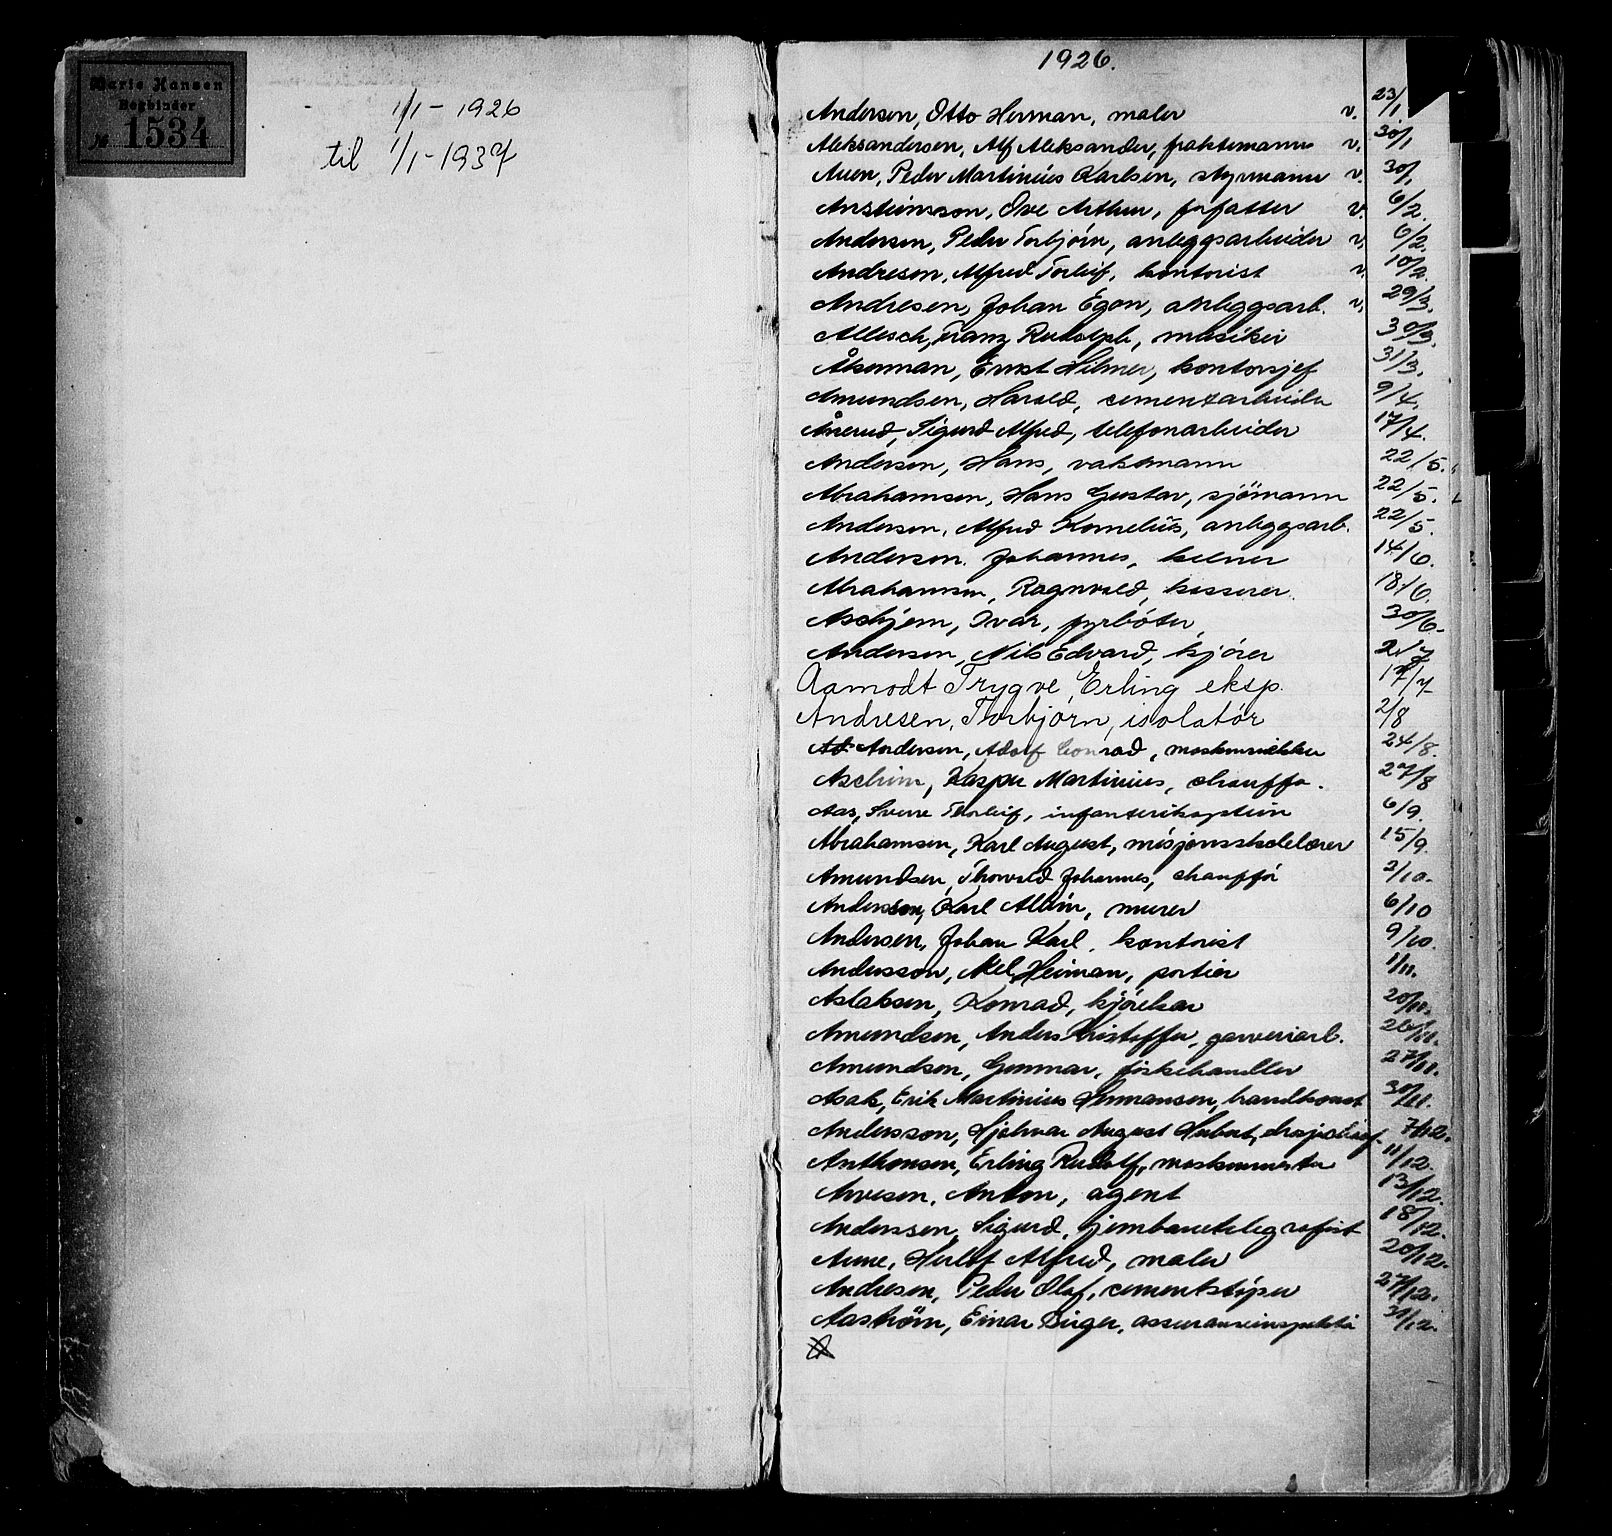 Marie Hansen
Bogbinder
№ 1534
1/1 - 1926
til 1/1 - 1937
1926.
Andersen, Otto Herman, maler v. 23/1
Aleksandersen, Alf Aleksander, fraktemann v. 30/1
Auen, Peder Martinius Karlsen, styrmann v. 30/1
Arsteinsson, Ove Arthur, forfatter v. 6/2.
Andersen, Peder Torbjörn, anleggsarbeider v. 6/2.
Andresen, Alfred Torleif, kontorist v. 10/2.
Andresen, Johan Egon, anleggsarb. v. 29/3.
Allesch, Franz Rudolph, musiker 30/3.
Åkerman, Ernst Hilmer, kontorsjef 31/3.
Amundsen, Harald, sementarbeider 9/4.
Ånerud, Sigurd Alfred, telefonarbeider 17/4.
Andersen, Hans, vaktmann 22/5.
Abrahamsen, Hans Gustav, sjömann 22/5.
Andersen, Alfred Kornelius, anleggsarb. 22/5.
Andersen, Johannes, kelner 14/6.
Abrahamsen, Ragnvald, kasserer. 18/6.
Askjem, Ivar, fyrböter 30/6.
Andersen, Nils Edvard, kjörer 2/7
Aamodt Trygve Erling eksp. 17/7
Andresen, Thorbjörn, isolatör 2/8
Ad. Andersen, Adolf Conrad, maskinsnekker 24/8.
Aschim, Kasper Martinius, chauffør. 27/8
Aas, Sverre Thorleif, infanterikaptein 6/9.
Abrahamsen, Karl August, misjonsskolelærer 15/9.
Amundsen, Thorvald Johannes, chaufför 2/10.
Andersen, Karl Albin, murer 6/10
Andersen, Johan Karl, kontorist 9/10.
Andersson, Axel Heiman, portier 1/11.
Aslaksen, Konrad, kjörekar 20/11.
Amundsen, Anders Kristoffer, garveriarb. 26/11.
Amundsen, Gunnar, fiskehandler 27/11.
Asak, Erik Martinius Hermansen, 30/11.
Andersson, Hjalmar August Hubert, 7/12.
Anthonsen, Erling Rudolf, maskinmester 11/12.
Arvesen, Anton, agent 13/12.
Anderssen, Sigurd, jernbanetelegrafist 18/12.
Aune, Herlof Alfred, maler 20/12.
Andresen, Peder Olaf, cementstöper 27/12.
Aaström, Einar Birger, assuranseinspektör 31/12.